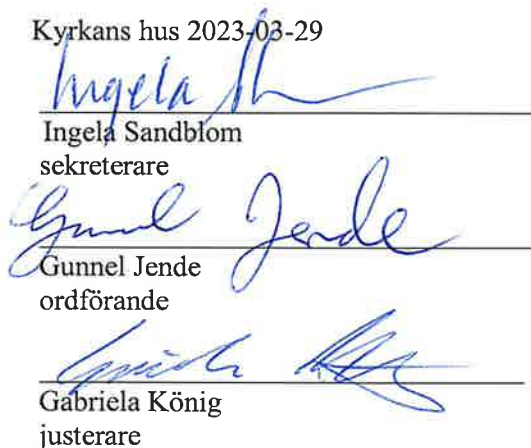 Kyrkans hus 2023-03-29
Ingela
Ingela Sandblom
sekreterare
Gunnel Jende
Gunnel Jende
ordförande
Gabriela König
justerare